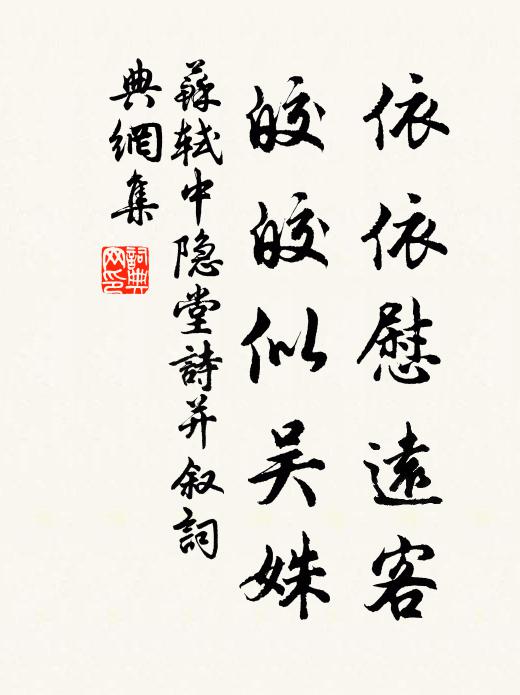 依依慰遠客
皎皎似吴姝
蘇軾中隐堂詩并叙詞
典網集
詞典网印